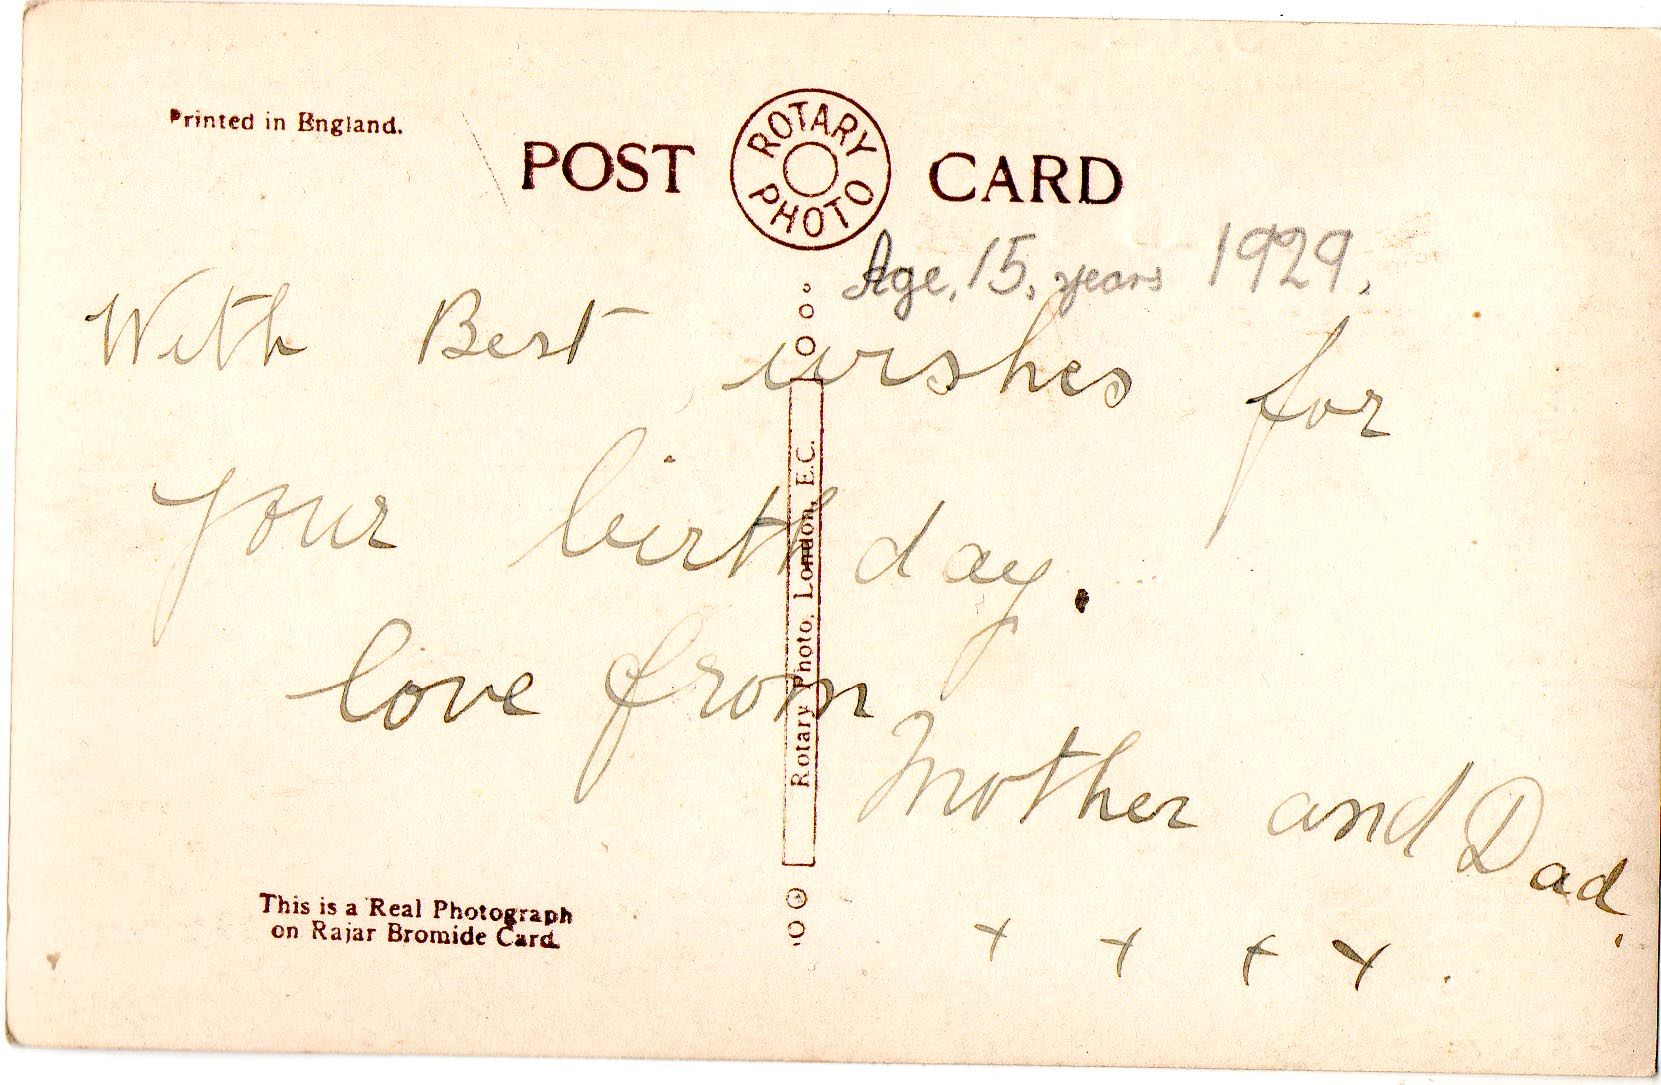 Printed in England.
POST CARD
ROTARY
PHOTO
Age, 15, years 1929.
With Best wishes for
your birthday.
love from
Mother and Dad.
x x x x .
Rotary Photo, London, E.C.
This is a Real Photograph
on Rajar Bromide Card.